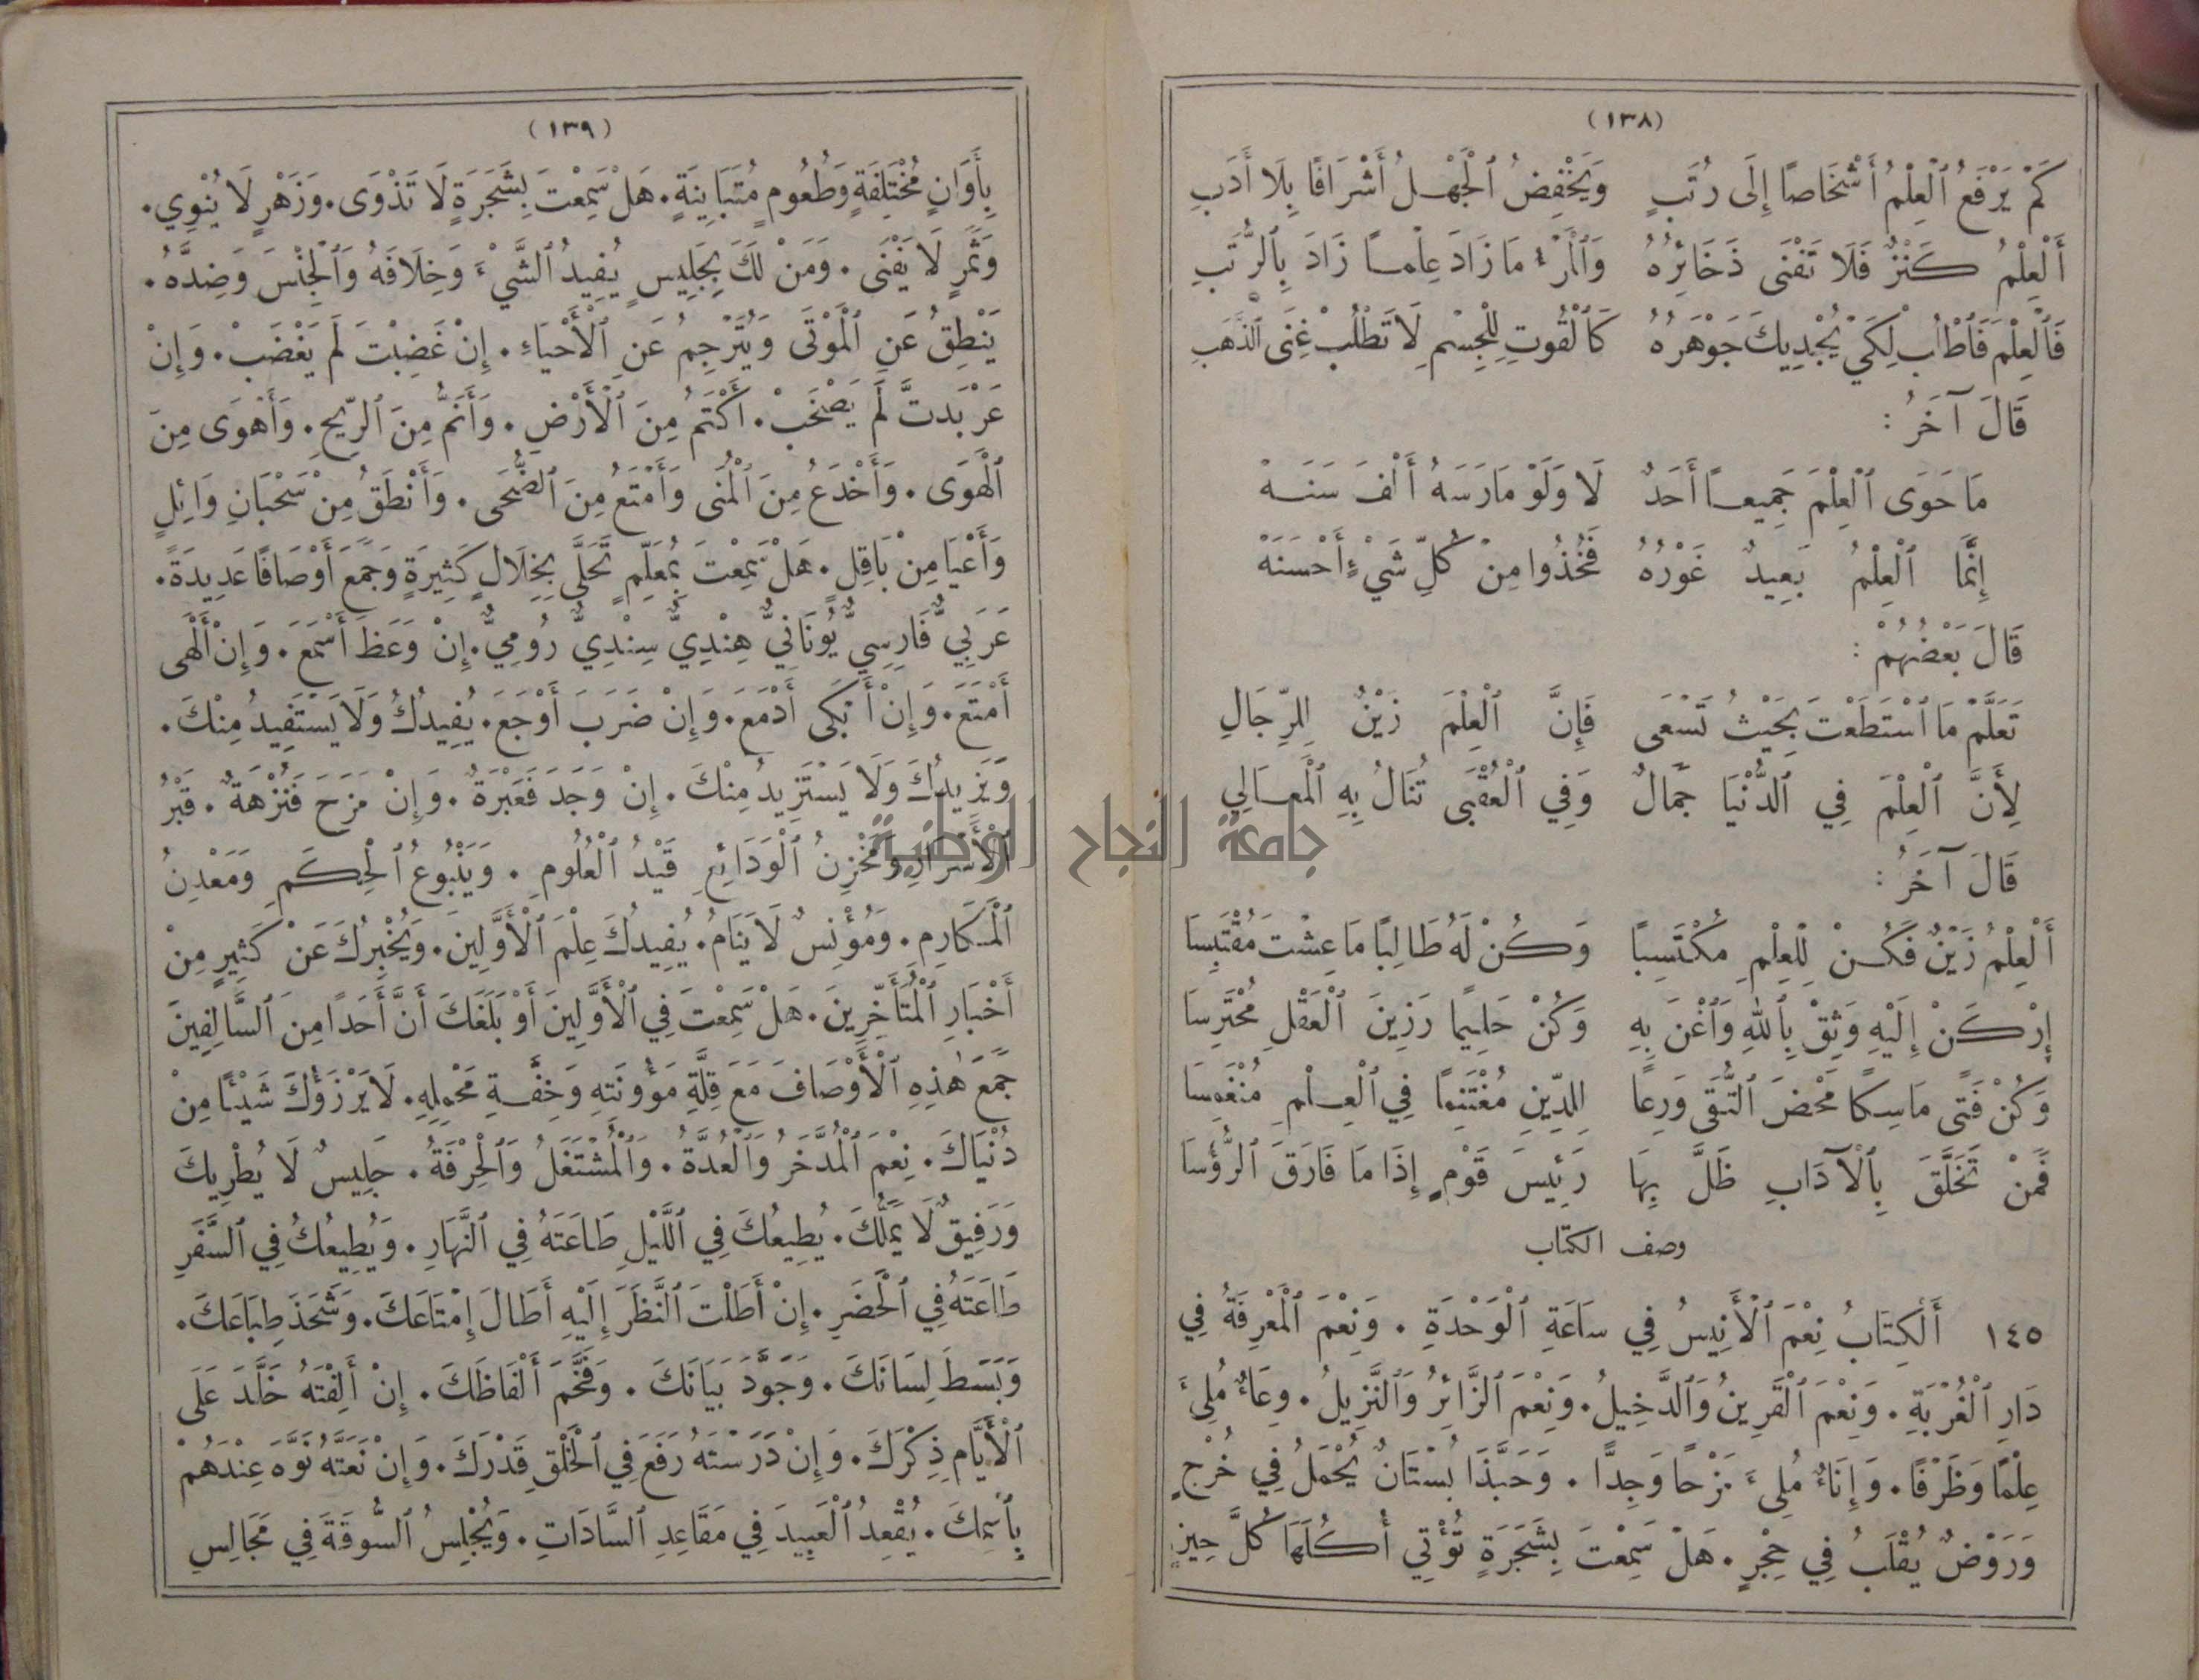 (١٣٨)
كَمْ يَرْفَعُ ٱلْعِلْمُ أَشْخَاصًا إِلَى رُتَبٍ وَيَخْفِضُ ٱلْجَهْلُ أَشْرَافًا بِلَا أَدَبِ
أَلْعِلْمُ كَنْزٌ فَلَا تَفْنَى ذَخَائِرُهُ وَٱلْمَرْءُ مَا زَادَ عِلْمًا زَادَ بِٱلرُّتَبِ
فَٱلْعِلْمَ فَٱطْلُبْ لِكَيْ يُجْدِيكَ جَوْهَرُهُ كَٱلْقُوتِ لِلْجِسْمِ لَا تَطْلُبْ غِنَى ٱلذَّهَبِ
قَالَ آخَرُ :
مَا حَوَى ٱلْعِلْمَ جَمِيعًا أَحَدٌ لَا وَلَوْ مَارَسَهُ أَلْفَ سَنَهْ
إِنَّمَا ٱلْعِلْمُ بَعِيدٌ غَوْرُهُ فَخُذُوا مِنْ كُلِّ شَيْءٍ أَحْسَنَهْ
قَالَ بَعْضُهُمْ :
تَعَلَّمْ مَا ٱسْتَطَعْتَ بِحَيْثُ تَسْعَى فَإِنَّ ٱلْعِلْمَ زَيْنٌ لِلرِّجَالِ
لِأَنَّ ٱلْعِلْمَ فِي ٱلدُّنْيَا جَمَالٌ وَفِي ٱلْعُقْبَى تُنَالُ بِهِ ٱلْمَعَالِي
قَالَ آخَرُ :
أَلْعِلْمُ زَيْنٌ فَكُنْ لِلْعِلْمِ مُكْتَسِبًا وَكُنْ لَهُ طَالِبًا مَا عِشْتَ مُقْتَبِسَا
إِرْكَنْ إِلَيْهِ وَثِقْ بِٱللّٰهِ وَٱغْنَ بِهِ وَكُنْ حَلِيمًا رَزِينَ ٱلْعَقْلِ مُحْتَرِسَا
وَكُنْ فَتًى مَاسِكًا مَحْضَ ٱلتُّقَى وَرِعًا لِلدِّينِ مُغْتَنِمًا فِي ٱلْعِلْمِ مُنْغَمِسَا
فَمَنْ تَخَلَّقَ بِٱلْآدَابِ ظَلَّ بِهَا رَئِيسَ قَوْمٍ إِذَا مَا فَارَقَ ٱلرُّؤَسَا
وصف الكتاب
١٤٥ أَلْكِتَابُ نِعْمَ ٱلْأَنِيسُ فِي سَاعَةِ ٱلْوَحْدَةِ . وَنِعْمَ ٱلْمَعْرِفَةُ فِي
دَارِ ٱلْغُرْبَةِ . وَنِعْمَ ٱلْقَرِينُ وَٱلدَّخِيلُ . وَنِعْمَ ٱلزَّائِرُ وَٱلنَّزِيلُ . وِعَاءٌ مُلِئَ
عِلْمًا وَظَرْفًا . وَإِنَاءٌ مُلِئَ مَزْحًا وَجِدًّا . وَحَبَّذَا بُسْتَانٌ يُحْمَلُ فِي خُرْجٍ
وَرَوْضٌ يُقْلَبُ فِي حِجْرٍ . هَلْ سَمِعْتَ بِشَجَرَةٍ تُؤْتِي أُكُلَهَا كُلَّ حِينٍ
(١٣٩)
بِأَوَانٍ مُخْتَلِفَةٍ وَطُعُومٍ مُتَبَايِنَةٍ . هَلْ سَمِعْتَ بِشَجَرَةٍ لَا تَذْوَى . وَزَهْرٍ لَا يُنْوِي .
وَثَمَرٍ لَا يَفْنَى . وَمَنْ لَكَ بِجَلِيسٍ يُفِيدُ ٱلشَّيْءَ وَخِلَافَهُ وَٱلْجِنْسَ وَضِدَّهُ .
يَنْطِقُ عَنِ ٱلْمَوْتَى وَيُتَرْجِمُ عَنِ ٱلْأَحْيَاءِ . إِنْ غَضِبْتَ لَمْ يَغْضَبْ . وَإِنْ
عَرْبَدتَّ لَمْ يَصْخَبْ . أَكْتَمُ مِنَ ٱلْأَرْضِ . وَأَنَمُّ مِنَ ٱلرِّيحِ . وَأَهْوَى مِنَ
ٱلْهَوَى . وَأَخْدَعُ مِنَ ٱلْمُنَى وَأَمْتَعُ مِنَ ٱلضُّحَى . وَأَنْطَقُ مِنْ سَحْبَانِ وَائِلٍ
وَأَعْيَا مِنْ بَاقِلٍ . هَلْ سَمِعْتَ بِمُعَلِّمٍ تَحَلَّى بِخِلَالٍ كَثِيرَةٍ وَجَمَعَ أَوْصَافًا عَدِيدَةً .
عَرَبِيٌّ فَارِسِيٌّ يُونَانِيٌّ هِنْدِيٌّ سِنْدِيٌّ رُومِيٌّ . إِنْ وَعَظَ أَسْمَعَ . وَإِنْ أَلْهَى
أَمْتَعَ . وَإِنْ أَبْكَى أَدْمَعَ . وَإِنْ ضَرَبَ أَوْجَعَ . يُفِيدُكَ وَلَا يَسْتَفِيدُ مِنْكَ .
وَيَزِيدُكَ وَلَا يَسْتَزِيدُ مِنْكَ . إِنْ وَجَدَ فَعَبْرَةٌ . وَإِنْ مَزَحَ فَنُزْهَةٌ . قَبْرُ
ٱلْأَسْرَارِ وَمَخْزِنُ ٱلْوَدَائِعِ قَيْدُ ٱلْعُلُومِ . وَيَنْبُوعُ ٱلْحِكَمِ وَمَعْدِنُ
ٱلْمَكَارِمِ . وَمُؤْنِسٌ لَا يَنَامُ . يُفِيدُكَ عِلْمَ ٱلْأَوَّلِينَ . وَيُخْبِرُكَ عَنْ كَثِيرٍ مِنْ
أَخْبَارِ ٱلْمُتَأَخِّرِينَ . هَلْ سَمِعْتَ فِي ٱلْأَوَّلِينَ أَوْ بَلَغَكَ أَنَّ أَحَدًا مِنَ ٱلسَّالِفِينَ
جَمَعَ هٰذِهِ ٱلْأَوْصَافَ مَعَ قِلَّةِ مَؤُونَتِهِ وَخِفَّةِ مَحْمِلِهِ . لَا يَرْزَؤُكَ شَيْئًا مِنْ
دُنْيَاكَ . نِعْمَ ٱلْمُدَّخَرُ وَٱلْعُدَّةُ . وَٱلْمُشْتَغَلُ وَٱلْحِرْفَةُ . جَلِيسٌ لَا يُطْرِيكَ
وَرَفِيقٌ لَا يَمَلُّكَ . يُطِيعُكَ فِي ٱللَّيْلِ طَاعَتَهُ فِي ٱلنَّهَارِ . وَيُطِيعُكَ فِي ٱلسَّفَرِ
طَاعَتَهُ فِي ٱلْحَضَرِ . إِنْ أَطَلْتَ ٱلنَّظَرَ إِلَيْهِ أَطَالَ إِمْتَاعَكَ . وَشَحَذَ طِبَاعَكَ .
وَبَسَطَ لِسَانَكَ . وَجَوَّدَ بَيَانَكَ . وَفَخَّمَ أَلْفَاظَكَ . إِنْ أَلِفْتَهُ خَلَّدَ عَلَى
ٱلْأَيَّامِ ذِكْرَكَ . وَإِنْ دَرَسْتَهُ رَفَعَ فِي ٱلْخَلْقِ قَدْرَكَ . وَإِنْ نَعَتَّهُ نَوَّهَ عِنْدَهُمْ
بِٱسْمِكَ . يُقْعِدُ ٱلْعَبِيدَ فِي مَقَاعِدِ ٱلسَّادَاتِ . وَيُجْلِسُ ٱلسُّوقَةَ فِي مَجَالِسِ
جامعة النجاح الوطنية